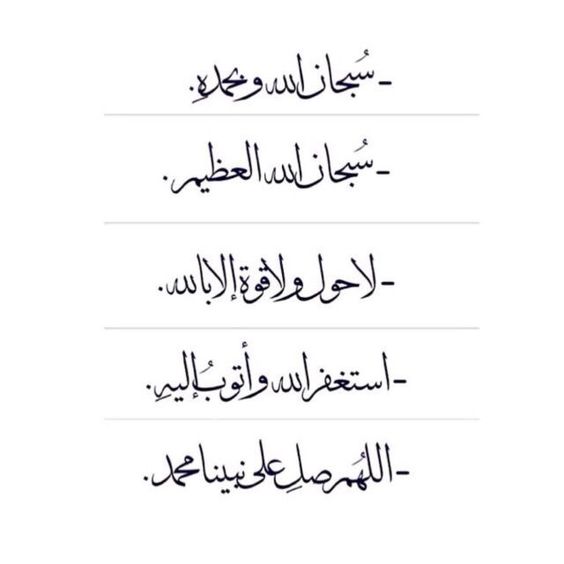 - سُبحان الله وبحمدهِ.
- سُبحان الله العظيم.
- لا حول ولا قوة إلا بالله.
- استغفر الله وأتوبُ إليهِ.
- اللهُم صلِ على نبينا محمد.